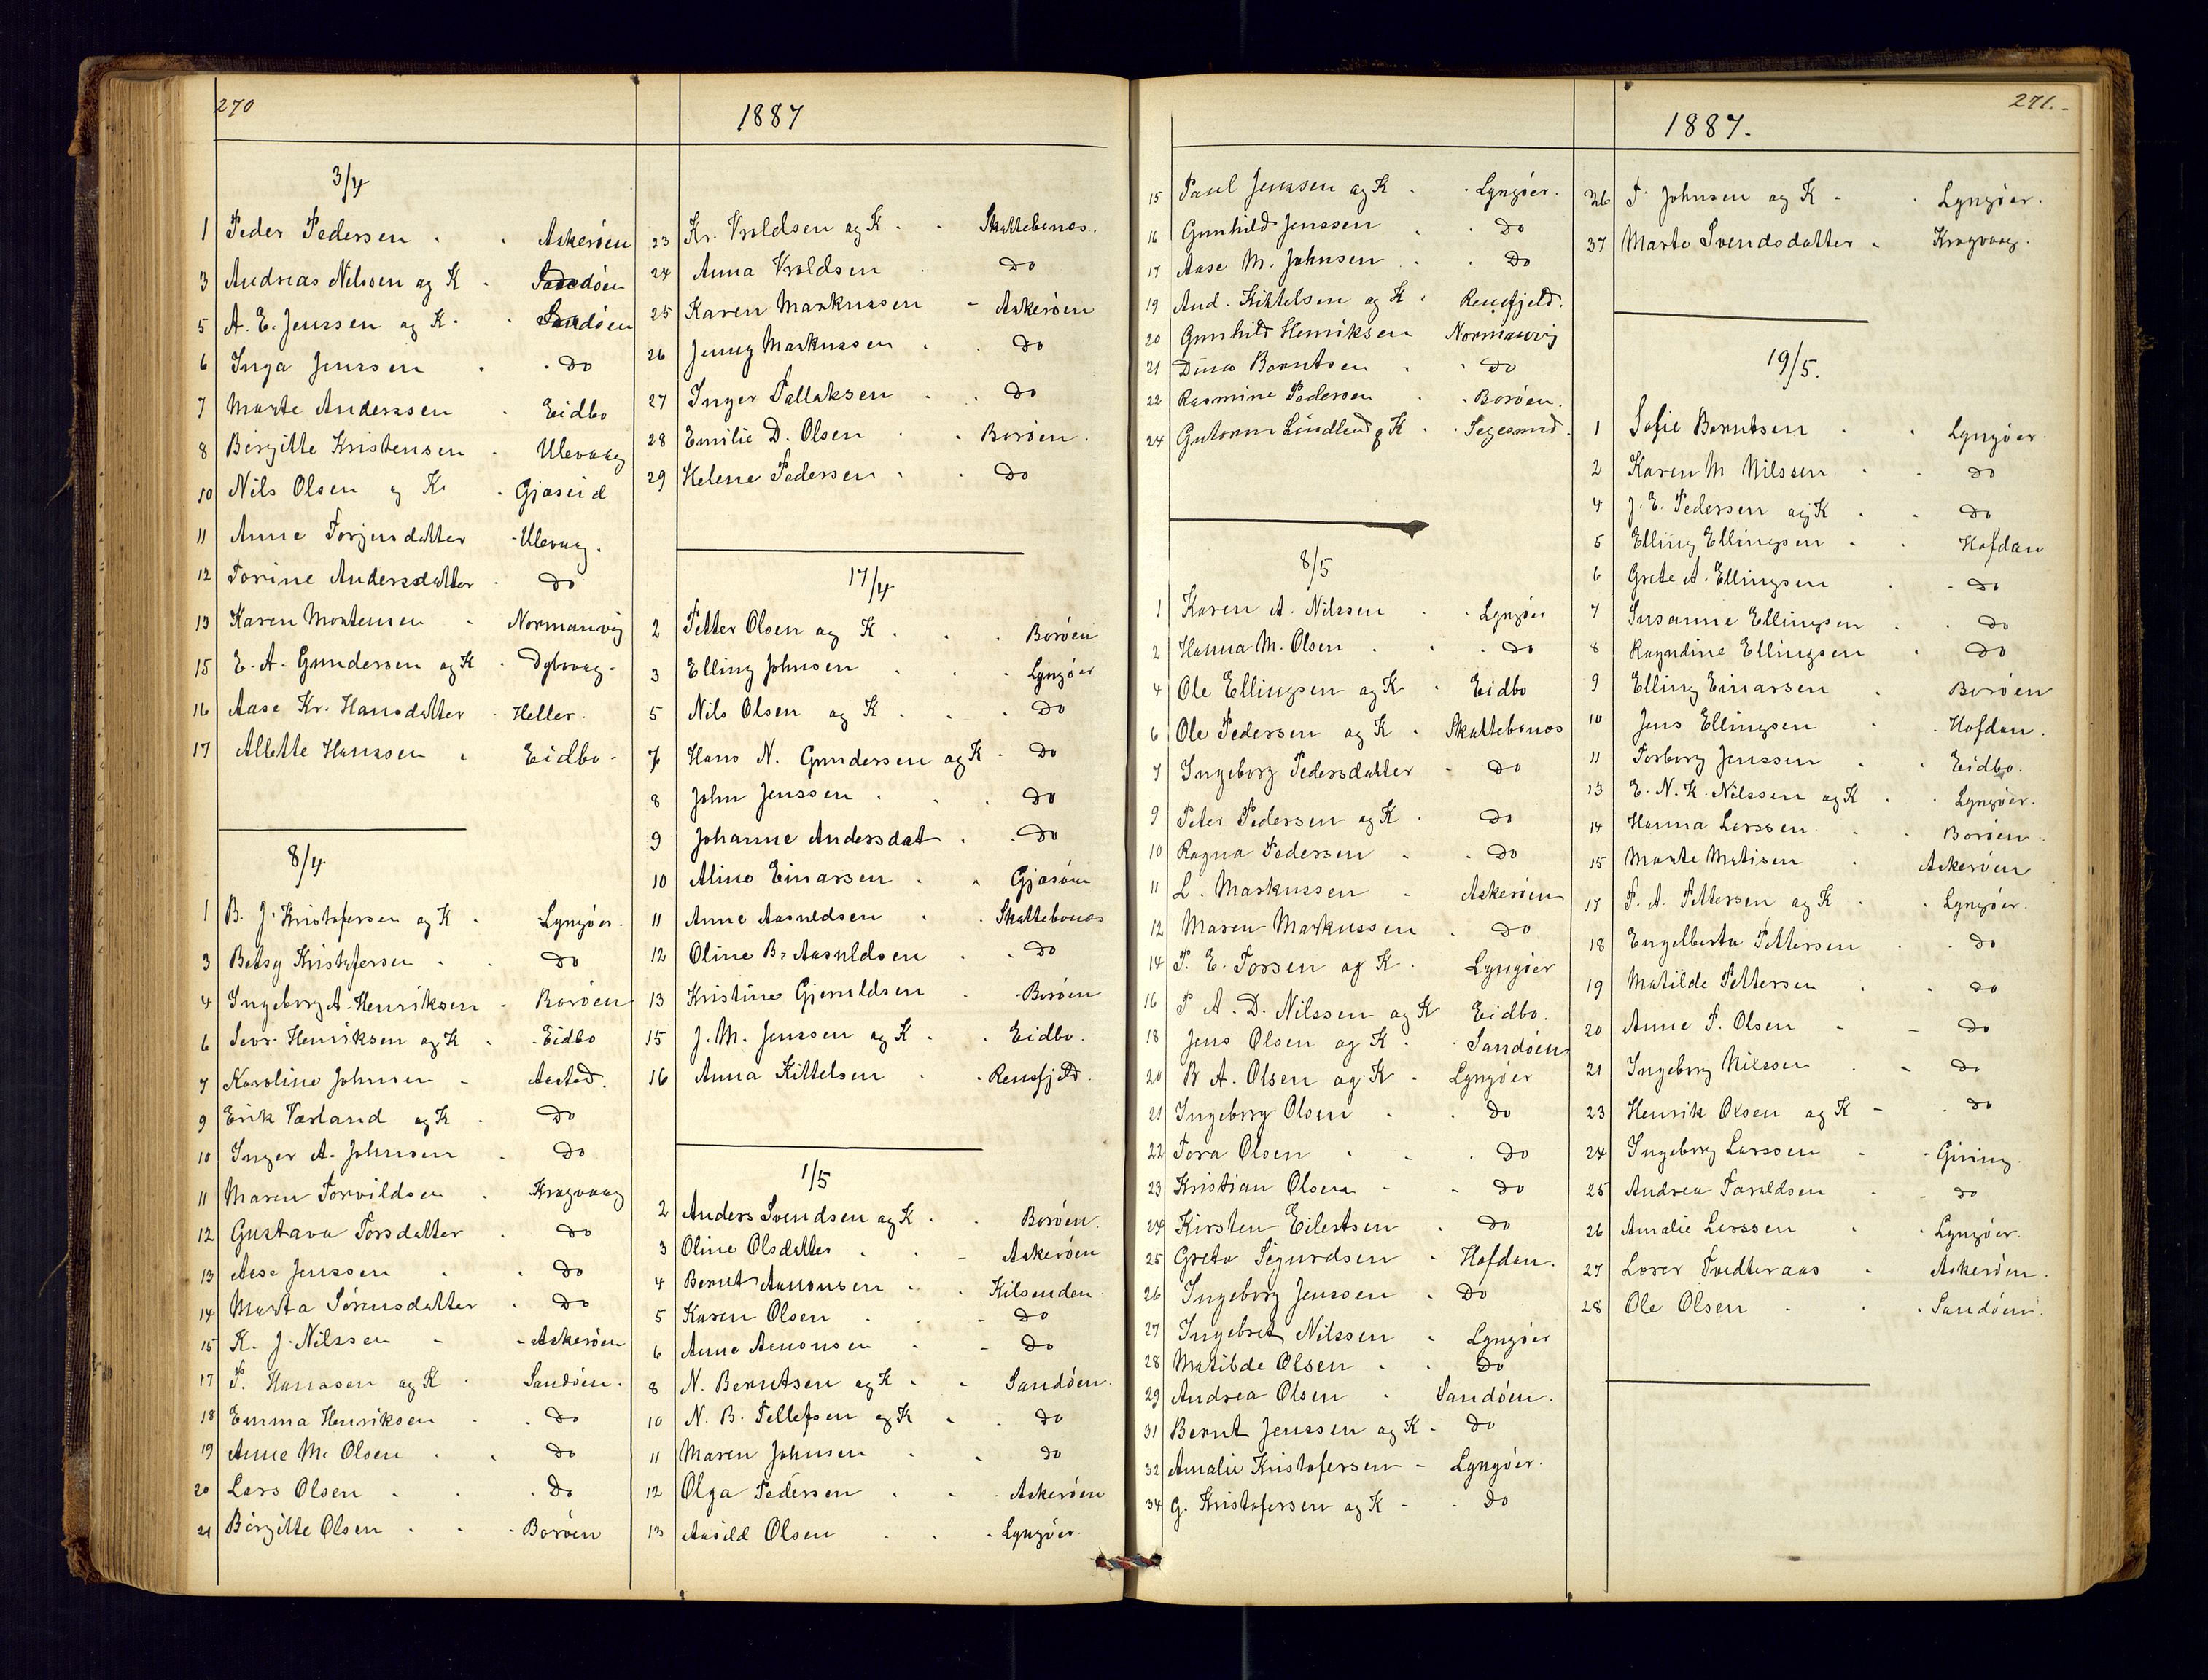 270
1887
3/4
1 Peder Pedersen Askerøen
3 Andreas Nilssen og K Sandøen
5 A. E. Jenssen og K. Sandøen
6 Inga Jenssen do
7 Marte Anderssen Eidbo
8 Birgitte Kristensen Ulevaag
10 Nils Olsen og K Gjæseid
11 Anne Torjusdatter Ulevaag.
12 Torine Andersdatter do
13 Karen Mortensen Normanvig
15 E. A. Gundersen og K Dybvaag.
16 Aase Kr. Hansdatter Heller.
17 Allette Hanssen Eidbo.
8/4
1 B. J. Kristofersen og K Lyngøer.
3 Betsy Kristofersen do
4 Ingeborg A. Henriksen Borøen
6 Sevr. Henriksen og K Eidbo
7 Karoline Johnsen Aasted.
9 Erik Værland og K do
10 Inger A. Johnsen do
11 Maren Torvildsen Kragvaag
12 Gustava Torsdatter do
13 Aase Jenssen do
14 Marta Sørensdatter do
15 K. J. Nilssen Askerøen
17 P. Hanssen og K Sandøen.
18 Emma Henriksen do
19 Anne M. Olsen do
20 Lars Olsen do
21 Birgitte Olsen Borøen
23 Kr. Vroldsen og K Skattebonæs.
24 Anna Vroldsen do
25 Karen Markussen Askerøen
26 Jenny Markussen do
27 Inger Tellaksen do
28 Emilie D. Olsen Borøen.
29 Helene Pedersen do
17/4
2 Petter Olsen og K Borøen
3 Elling Johnsen Lyngøer
5 Nils Olsen og K do
7 Hans N. Gundersen og K do
8 John Jenssen do
9 Johanne Andersdat do
10 Aline Einarsen
11 Anne Aasuldsen Skattebonæs
12 Oline B. Aasuldsen do
13 Kristine Gjeruldsen Borøen
15 J. M. Jenssen og K Eidbo.
16 Anna Kittelsen Rensfjeld.
1/5
2 Anders Svendsen og K Borøen.
3 Oline Olsdatter Askerøen
4 Bernt Aamonsen Kilsenden
5 Karen Olsen do
6 Anne Amonsen do
8 N. Berntsen og K Sandøen.
10 N. B. Tellefsen og K do
11 Maren Johnsen do
12 Olga Pedersen Askerøen
13 Aasild Olsen Lyngøer.
271.
1887.
15 Paul Jenssen og K Lyngøer.
16 Gunhild Jenssen do
17 Aase M. Johnsen do
19 And. Kittelsen og K Rensfjeld.
20 Gunhild Henriksen Normanvig
21 Dina Berntsen do
22 Rasmine Pedersen Borøen.
24 Gutorm Lindland og K
8/5
1 Karen A. Nilssen Lyngøer
2 Hanna M. Olsen do
4 Ole Ellingsen og K Eidbo
6 Ole Pedersen og K Skattebonæs
7 Ingeborg Pedersdatter do
9 Peter Pedersen og K do
10 Ragna Pedersen do
11 L. Markussen Askerøen
12 Maren Markussen do
14 P. E. Torsen og K. Lyngøer
16 P. A. D. Nilssen og K Eidbo.
18 Jens Olsen og K Sandøen
20 B A. Olsen og K Lyngøer
21 Ingeborg Olsen do
22 Tora Olsen do
23 Kristian Olsen do
24 Kirsten Eilertsen do
25 Grete Sigurdsen Hofdan.
26 Ingeborg Jenssen do
27 Ingebret Nilssen Lyngøer
28 Matilde Olsen do
29 Andrea Olsen Sandøen.
31 Bernt Jenssen og K do
32 Amalie Kristofersen Lyngøer.
34 G. Kristofersen og K do
36 T. Johnsen og K Lyngøer.
37 Marte Svendsdatter Kragvaag.
19/5.
1 Sofie Berntsen Lyngøer
2 Karen M Nilssen do
4 J. E. Pedersen og K do
5 Elling Ellingsen Hofdan
6 Grete A. Ellingsen do
7 Susanne Ellingsen do
8 Ragndine Ellingsen do
9 Elling Einarsen Borøen
10 Jens Ellingsen Hofdan.
11 Torborg Jenssen Eidbo.
13 E. N. K. Nilssen og K Lyngøer.
14 Hanna Larssen Borøen
15 Marte Matisen Askerøen
17 P. A. Pettersen og K Lyngøer.
18 Engelberta Pettersen do
19 Matilde Pettersen do
20 Anne P. Olsen do
21 Ingeborg Nilssen do
23 Henrik Olsen og K do
24 Ingeborg Larssen Giring.
25 Andrea Taraldsen do
26 Amalie Larssen Lyngøer.
27 Askerøen.
28 Ole Olsen Sandøen.